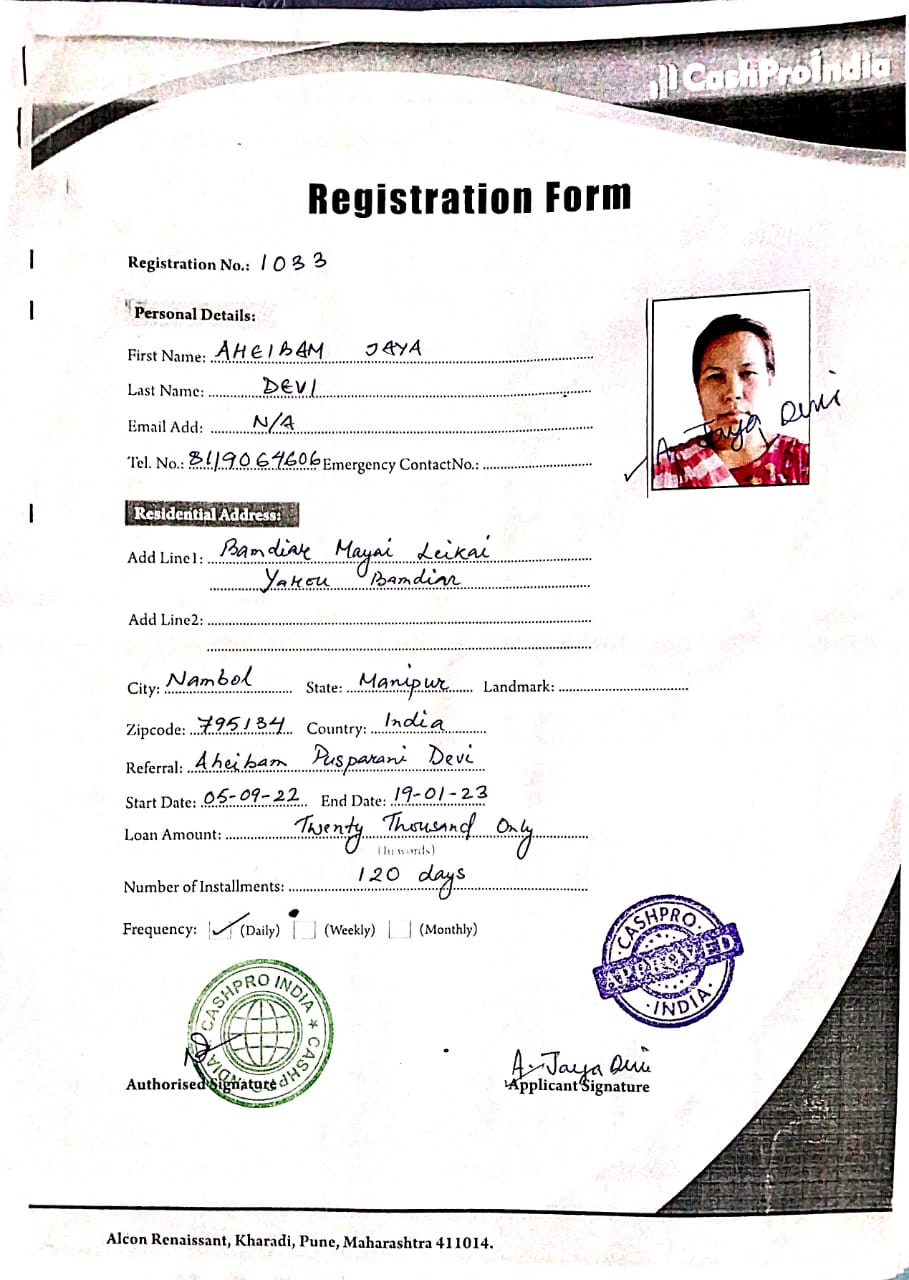 CashProIndia
Registration Form
Registration No.: 1033
Personal Details:
First Name: AHEIBAM JAYA
Last Name: DEVI
Email Add: N/A
Tel. No.: 8119064606 Emergency ContactNo.:
A. Jaya Devi
Residential Address:
Add Line1: Bamdiar Mayai Leikai
Yamou Bamdiar
Add Line2:
City: Nambol State: Manipur Landmark:
Zipcode: 795134 Country: India
Referral: Aheibam Pusparani Devi
Start Date: 05-09-22 End Date: 19-01-23
Loan Amount: Twenty Thousand Only
(In words)
Number of Installments: 120 days
Frequency: (Daily) (Weekly) (Monthly)
CASHPRO INDIA
APPROVED
CASHPRO INDIA ★ CASHPRO INDIA
A. Jaya Devi
Authorised Signature Applicant Signature
Alcon Renaissant, Kharadi, Pune, Maharashtra 411014.